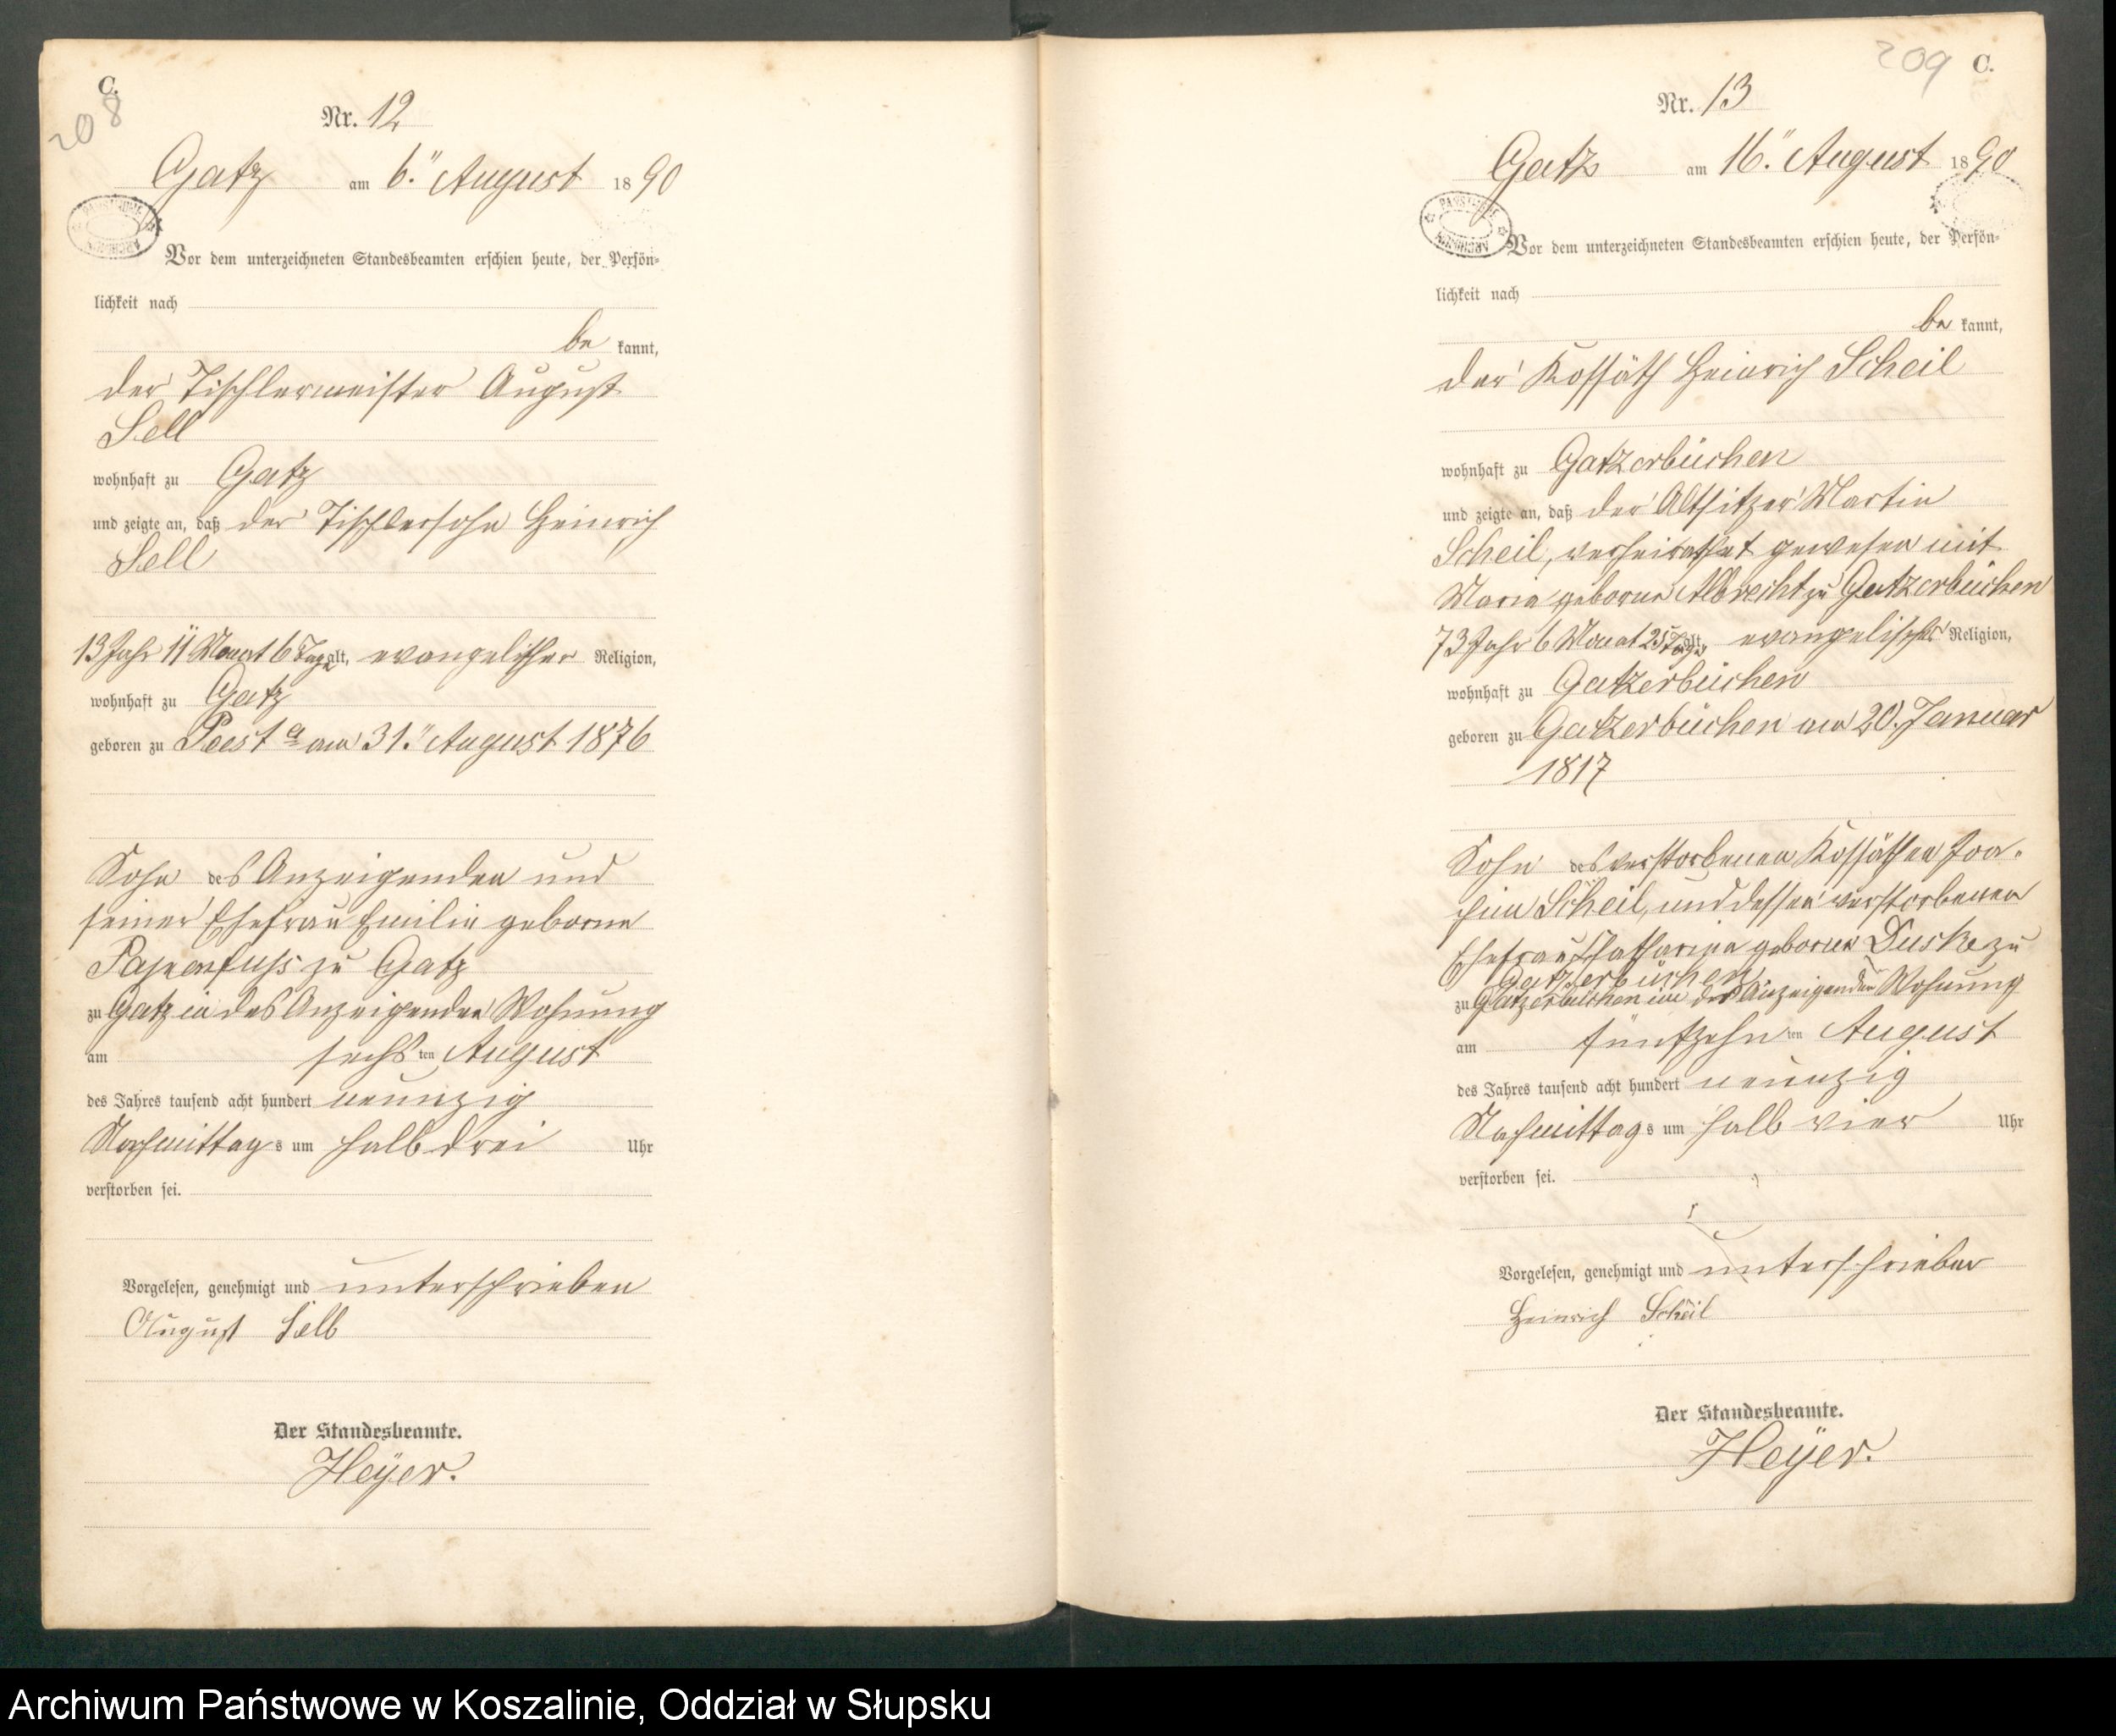 C.
208
Nr. 12
Gatz am 6." August 1890
Vor dem unterzeichneten Standesbeamten erschien heute, der Persön-
lichkeit nach
be kannt,
der Tischlermeister August
Sell
wohnhaft zu Gatz
und zeigte an, daß der Tischlersohn Heinrich
Sell
13 Jahr 11 Monat 6 Tage alt, evangelischer Religion,
wohnhaft zu Gatz
geboren zu Peest am 31." August 1876
Sohn des Anzeigenden und
seiner Ehefrau Emilie geborne
Papenfuss zu Gatz
zu Gatz in des Anzeigenden Wohnung
am sechsten August
des Jahres tausend acht hundert neunzig
Nachmittags um halb drei Uhr
verstorben sei.
Vorgelesen, genehmigt und unterschrieben
August Sell
Der Standesbeamte.
Heÿer.
209 C.
Nr. 13
Gatz am 16." August 1890
PAŃSTWOWE ARCHIWUM
Vor dem unterzeichneten Standesbeamten erschien heute, der Persön-
lichkeit nach
be kannt,
der Kossäth Heinrich Scheil
wohnhaft zu Gatzerbüchen
und zeigte an, daß der Altsitzer Martin
Scheil, verheirathet gewesen mit
Maria geborne Albrecht zu Gatzerbüchen
73 Jahr 6 Monat 25 Tage alt, evangelischer Religion,
wohnhaft zu Gatzerbüchen
geboren zu Gatzerbüchen am 20. Januar
1817
Sohn des verstorbenen Kossäthen Joa-
chim Scheil, und dessen verstorbenen
Ehefrau Chatharina geborne Duske zu
Gatzerbüchen
zu Gatzerbüchen in des Anzeigenden Wohnung
am fünfzehnten August
des Jahres tausend acht hundert neunzig
Nachmittags um halb vier Uhr
verstorben sei.
Vorgelesen, genehmigt und unterschrieben
Heinrich Scheil
Der Standesbeamte.
Heÿer.
Archiwum Państwowe w Koszalinie, Oddział w Słupsku